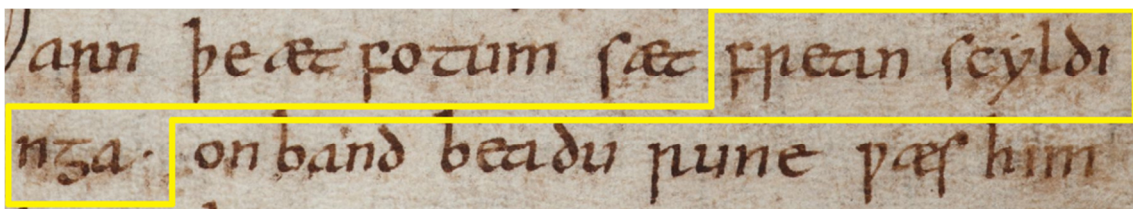 arn þe æt fotum sæt frean scyldi
nga· on band beadu rune ƿæs him